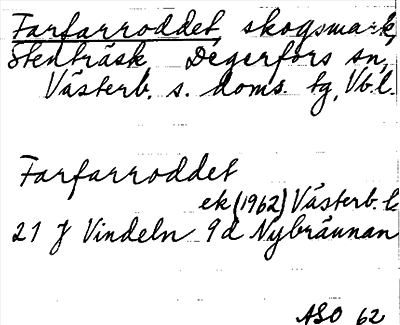 Farfarroddet, skogsmark,
Stenträsk, Degerfors sn,
Västerb. s. doms. tg, Vb.l.
Farfarroddet
ek (1962) Västerb. l.
21 J Vindeln 9d Nybrännan
ASO 62